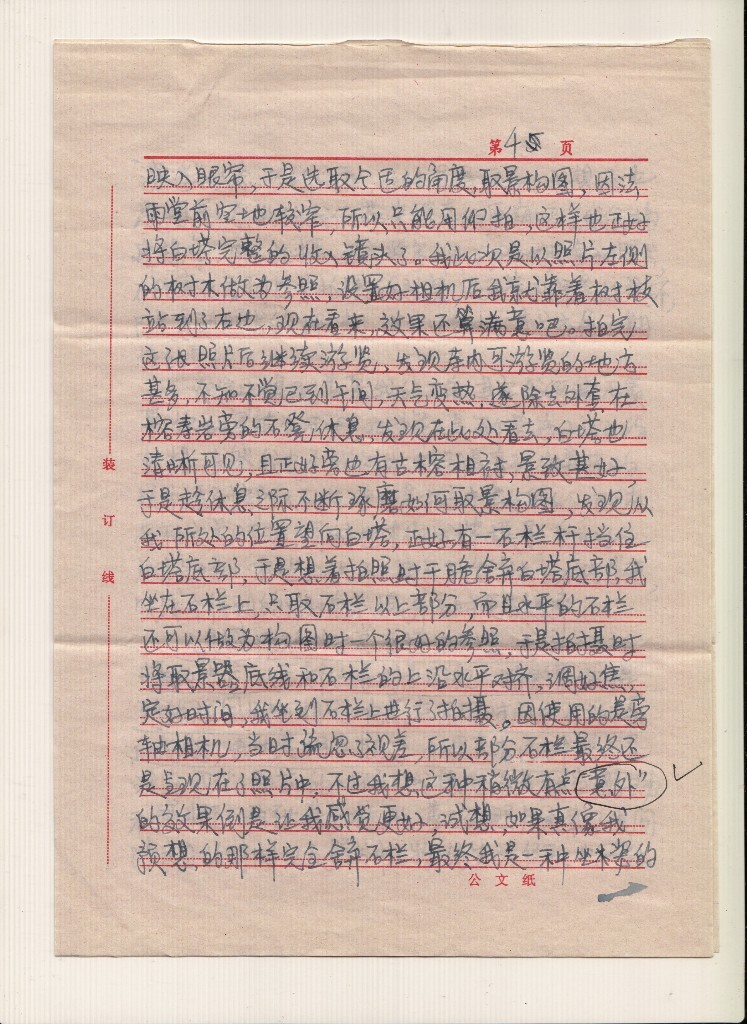 第45页
映入眼帘，于是选取合适的角度，取景构图，因法
雨堂前空地较窄，所以只能用仰拍，这样也正好
将白塔完整的收入镜头了。我此次是以照片左侧
的树木做为参照，设置好相机后我就靠着树枝
站到了右边，现在看来，效果还算满意吧。拍完
这张照片后继续游览，发现库内可游览的地方
甚多，不知不觉已到午间，天气变热，遂除去外套在
榕寿岩旁的石凳休息，发现在此处看去，白塔也
清晰可见，且正好旁边有古榕相衬，景致甚好，
于是趁休息之际不断琢磨如何取景构图，发现从
我所处的位置望向白塔，正好有一石栏杆挡住
白塔底部，于是想着拍照时干脆舍弃白塔底部，我
坐在石栏上，只取石栏以上部分，而且水平的石栏
还可以做为构图时一个很好的参照，于是拍摄时
将取景器底线和石栏的上沿水平对齐，调好焦，
定好时间，我坐到石栏上进行了拍摄。因使用的是旁
轴相机，当时疏忽了视差，所以部分石栏最终还
是呈现在了照片中，不过我想这种稍微有点“意外”
的效果倒是让我感觉更好，试想，如果真像我
预想的那样完全舍弃石栏，最终我是一种坐木桨的
公文纸
装
订
线